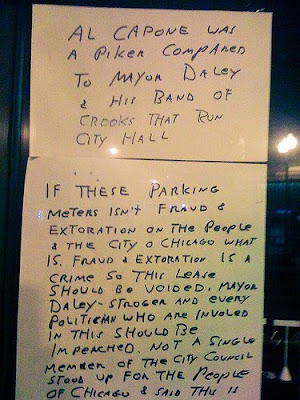 AL CAPONE WAS
A PIKER COMPARED
TO MAYOR DALEY
& HIS BAND OF
CROOKS THAT RUN
CITY HALL
IF THESE PARKING
METERS ISN'T FRAUD &
EXTORATION ON THE PEOPLE
& THE CITY O CHICAGO WHAT
IS. FRAUD & EXTORATION IS A
CRIME SO THIS LEASE
SHOULD BE VOIDED. MAYOR
DALEY-STROGER AND EVERY
POLITICIAN WHO ARE INVOLED
IN THIS SHOULD BE
IMPEACHED. NOT A SINGLE
MEMBER OF THE CITY COUNCIL
STOOD UP FOR THE PEOPLE
OF CHICAGO & SAID THIS IS